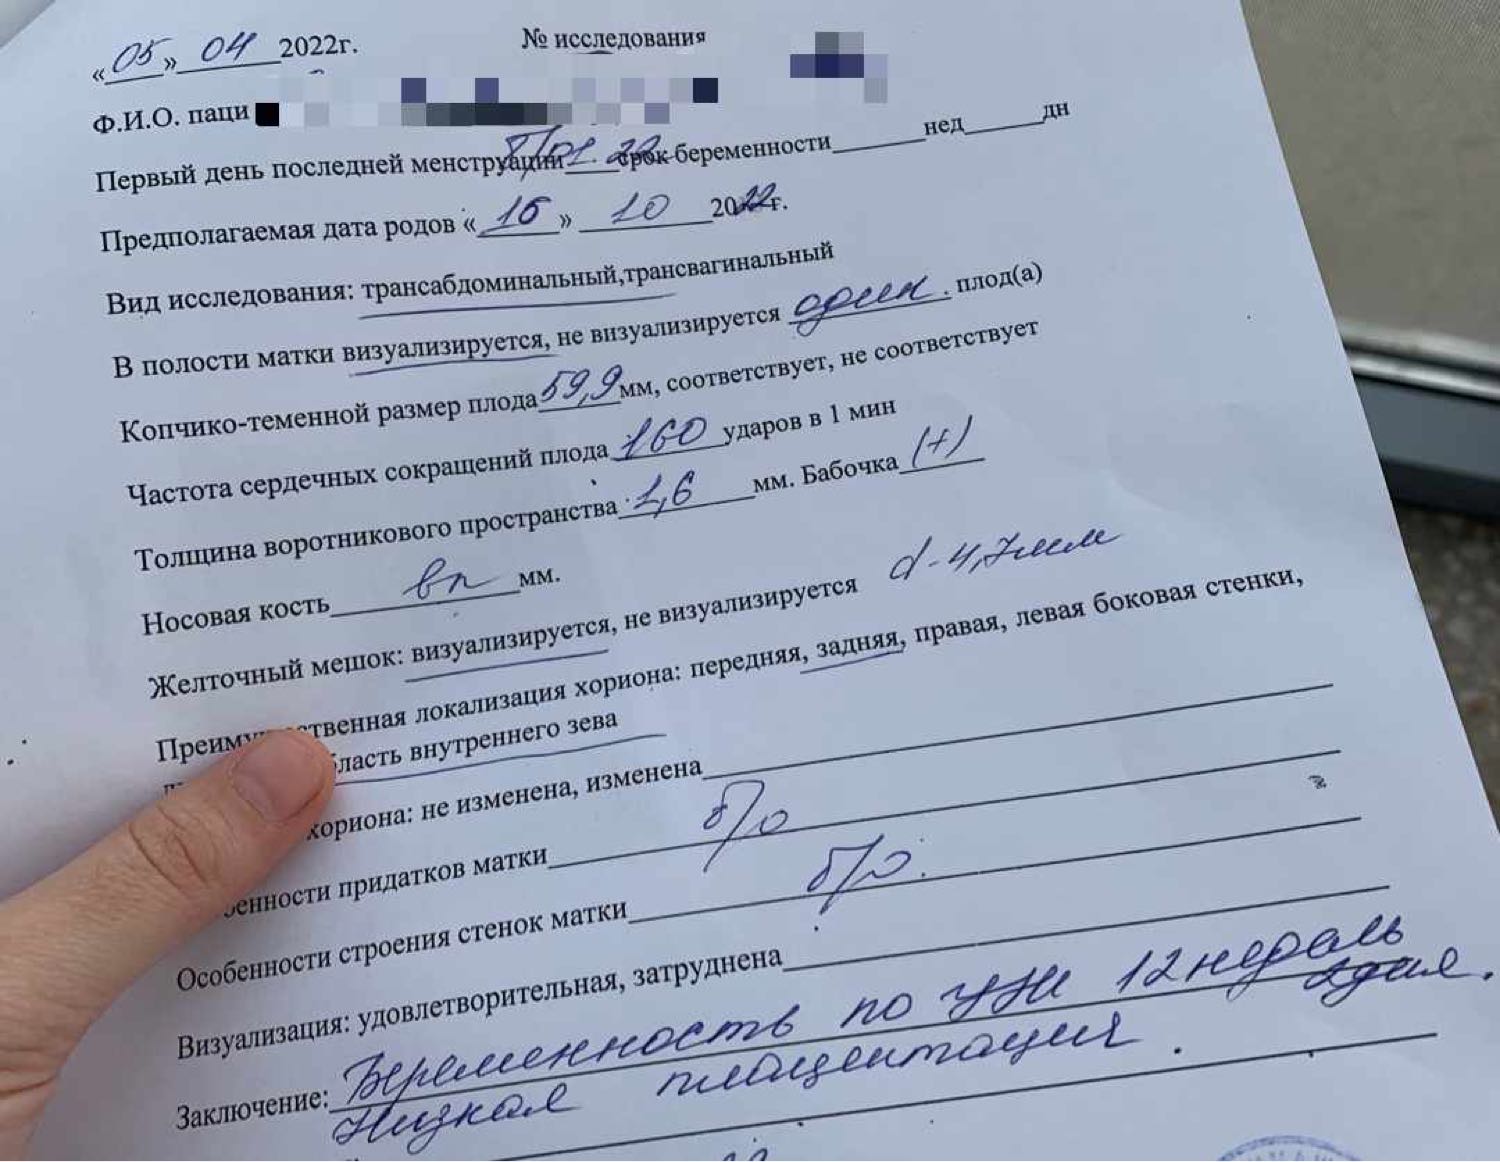 «05» 04 2022г. № исследования
Ф.И.О. паци
Первый день последней менструации срок беременности нед дн
Предполагаемая дата родов «15» 10 2022г.
Вид исследования: трансабдоминальный,трансвагинальный
В полости матки визуализируется, не визуализируется один. плод(а)
Копчико-теменной размер плода 59,9 мм, соответствует, не соответствует
Частота сердечных сокращений плода 160 ударов в 1 мин
Толщина воротникового пространства 1,6 мм. Бабочка (+)
Носовая кость вп мм.
Желточный мешок: визуализируется, не визуализируется d-4,7мм
Преимущественная локализация хориона: передняя, задняя, правая, левая боковая стенки,
бласть внутреннего зева
хориона: не изменена, изменена
бенности придатков матки б/о
Особенности строения стенок матки б/о.
Визуализация: удовлетворительная, затруднена
Заключение: Беременность по УЗИ 12 недель 2 дня.
Низкая плацентация.